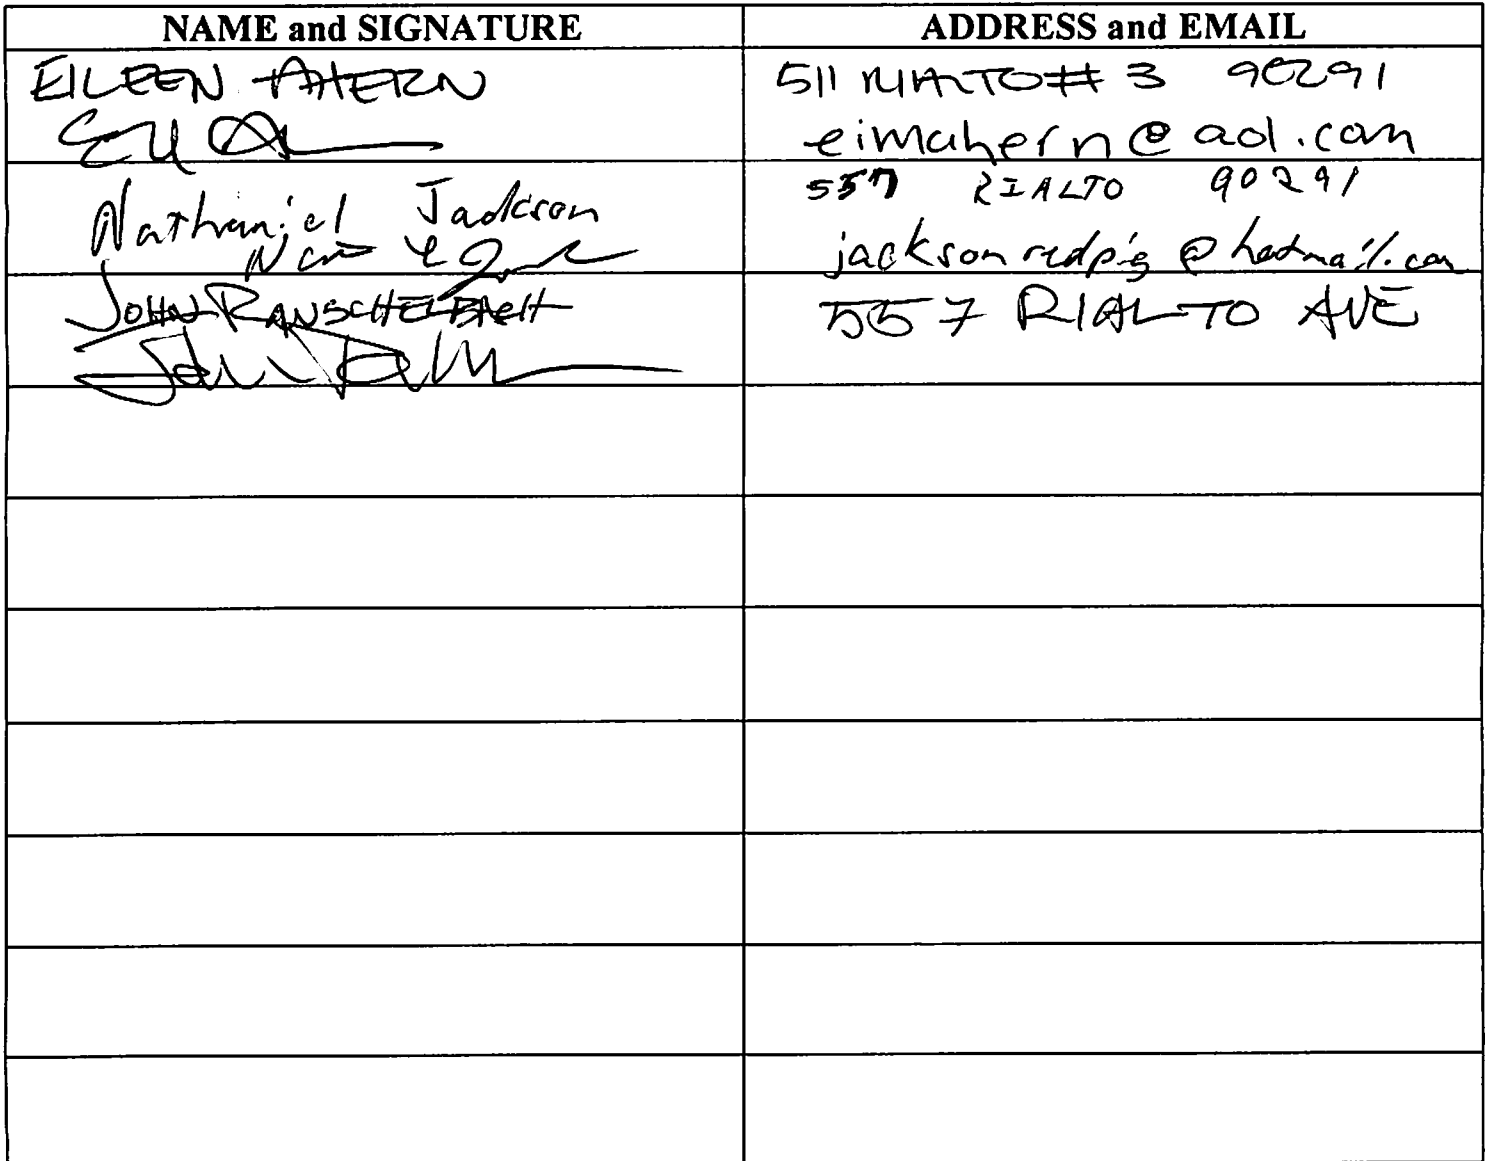 NAME and SIGNATURE
ADDRESS and EMAIL
EILEEN AHERN
511 RIALTO # 3 90291
eimahern@aol.com
Nathaniel Jackson
557 RIALTO 90291
jacksonredpig@hotmail.com
JOHN
557 RIALTO AVE